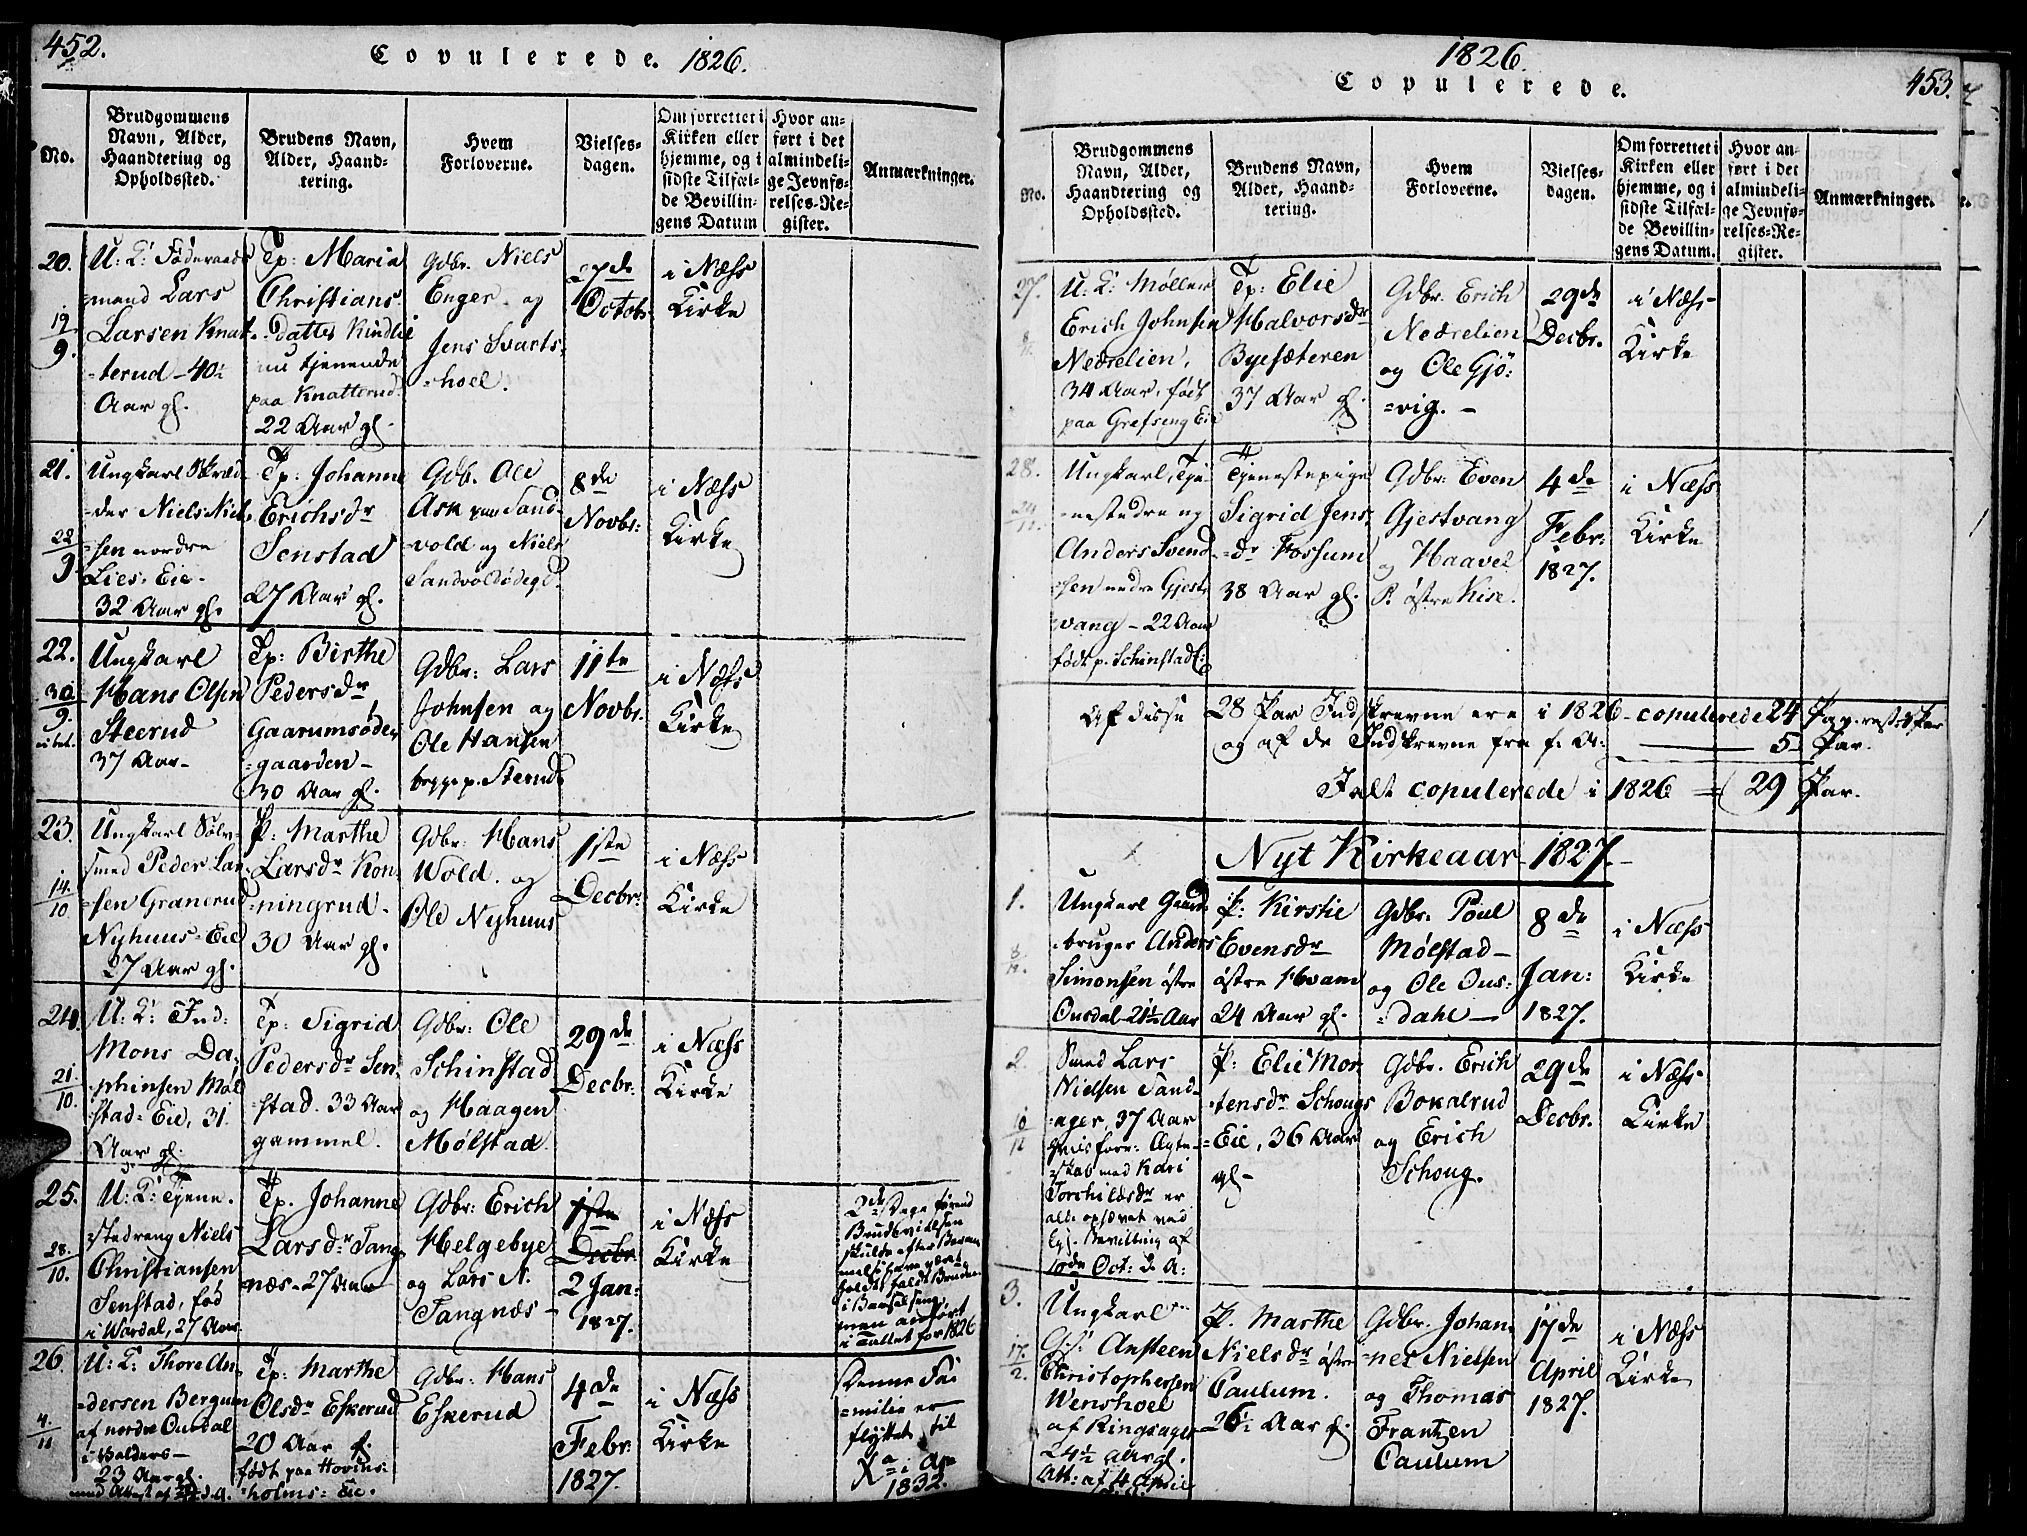 452.
Copulerede. 1826.
No.
Brudgommens
Navn, Alder,
Haandtering og
Opholdssted.
Brudens Navn,
Alder, Haand-
tering.
Hvem
Forloverne.
Vielses-
dagen.
Om forrettet i
Kirken eller
hjemme, og i
sidste Tilfæl-
de Bevillin-
gens Datum
Hvor an-
ført i det
almindeli-
ge Jevnfø-
relses-Re-
gister.
Anmærkninger.
20.
19/9.
U: K: Föderaads
=mand Lars
Larsen Knat-
=terud - 40½
Aar gl.
Tp: Maria
Christians
Datter Kindlie
nu tjenende
paa Knatterud
22 Aar gl.
Gdbr. Niels
Enger og
Jens Svarts-
=hoel.
27de
Octob:
i Næss
Kirke
21.
22/9
Ungkarl Skræd-
der Niels Niel-
=sen nordre
Lies Eie.
32 Aar gl.
Tp: Johanne
Erichsdr
Senstad
27 Aar gl.
Gdb. Ole
Ask paa Sand-
=vold og Niels
Sandvoldødegd.
8de
Novbr:
i Næss
Kirke
22.
30/9.
Ungkarl
Hans Olsen
Steerud
37 Aar-
Tp: Birthe
Pedersdr
Gaarumsøde-
=gaarden-
30 Aar gl.
Gdbr: Lars
Johnsen og
Ole Hansen
begge p. Sterud
11te
Novbr.
i Næss
Kirke
23.
14/10
Ungkarl Sølv-
smed Peder Lar-
=sen Granerud
Nyhuus=Eie
27 Aar gl.
P: Marthe
Larsdr Kon-
=ningrud.
30 Aar gl.
Gdbr: Hans
Wold. og
Ole Nyhuus
1ste
Decbr:
i Næss
Kirke
24.
21/10.
U: K: Ind:
Mons Da-
phinsen Møl-
stad=Eie, 31.
Aar gl.
Tp: Sigrid
Pedersdr Sen-
=stad. 33 Aar
gammel.
Gdbr: Ole
Schinstad
og Haagen
Mølstad.
29de
Decbr:
i Næss
Kirke
25.
28/10.
U: K: Tjene-
=stedreng Niels
Christiansen
Senstad, fød
i Wardal, 27 Aar
Tp. Johanne
Larsdr Tang-
næs - 27 Aar
Gdbr: Erich
Helgebye
og Lars N.
Tangnæs -
1ste
Decbr
2 Jan:
1827.
i Næss
Kirke
2de Dage førend
Brudevielsen
skulde efter Beram-
melse have været
holdt, faldt Bruden
i Barselseng,
men anført
i Tallet for 1826
26.
4./11
U: K: Thore An-
=dersen Bergum
af nordre Ousdal
i Valders -
23 Aar gl.
Tp: Marthe
Olsdr Eskerud
20 Aar gl.
født paa Hovins-
holms= Eie.
Gdbr: Hans
Eskerud
4de
Febr:
1827.
i Næss
Kirke
Denne Fa-
=milie er
flyttet til
Xa i Apr
1832.
1826.
Copulerede.
453.
No.
Brudgommens
Navn, Alder,
Haandtering og
Opholdssted.
Brudens Navn,
Alder, Haand-
tering.
Hvem
Forloverne.
Vielses-
dagen.
Om forrettet i
Kirken eller
hjemme, og i
sidste Tilfæl-
de Bevillin-
gens Datum.
Hvor an-
ført i det
almindeli-
ge Jevnfø-
relses-Re-
gister.
Anmærkninger.
27.
U: K: Møller
Erich Johnsen
Nedrelien,
34 Aar, født
paa Grefseng Eie
Tp: Elie
Halvorsdr
Byesæteren
37 Aar gl.
Gdbr: Erich
Nedrelien
og Ole Gjö-
=vig. -
29de
Decbr.
i Næss
Kirke
28.
Ungkarl, Tje-
=nestedreng
Anders Svend-
=sen nedre Gjest-
=vang - 22 Aar
født p. Schinstad
Tjenestepige
Sigrid Jens-
=dr Fossum
38 Aar gl.
Gdbr: Even
Gjestvang
og Haavel
P. østre Kise.
4de
Febr:
1827.
i Næss
Kirke
Af disse 28 Par Indskrevne ere i 1826 copulerede 24 Par
og af de Indskrevne fra f. A: 5 Par.
Ialt copulerede i 1826 = 29 Par.
Nyt Kirkeaar 1827.
1.
Ungkarl Gaard-
=bruger Anders
Simonsen østre
Ousdal 21½ Aar
P: Kirstie
Evensdr
østre Hvam
24 Aar gl.
Gdbr: Poul
Mølstad-
og Ole Ous-
=dahl -
8de
Jan:
1827.
i Næss
Kirke
2.
Smed Lars
Nielsen Sand-
=ager, 37 Aar
hvis forr: Ægte-
=skab med Kari
Torchildsdr er
ophævet ved
Kgl. Bevilling af
10de Oct: d. A:
P: Elie Mor-
tensdr Schougs
=Eie, 36 Aar
gl-
Gdbr. Erich
Bokalrud
og Erich
Schoug.
29de
Decbr.
i Næss
Kirke
3.
17./2.
Ungkarl
Ansteen
Christophersen
Wenshoel
af Ringsager
24½ Aar gl.
Att: af 4 April
P. Marthe
Nielsdr østre
Caulum.
26½ Aar gl.
Gdbr. Johan-
=nes Nielsen
og Thomas
Frantzen
Caulum
17de
April
1827.
i Næss
Kirke